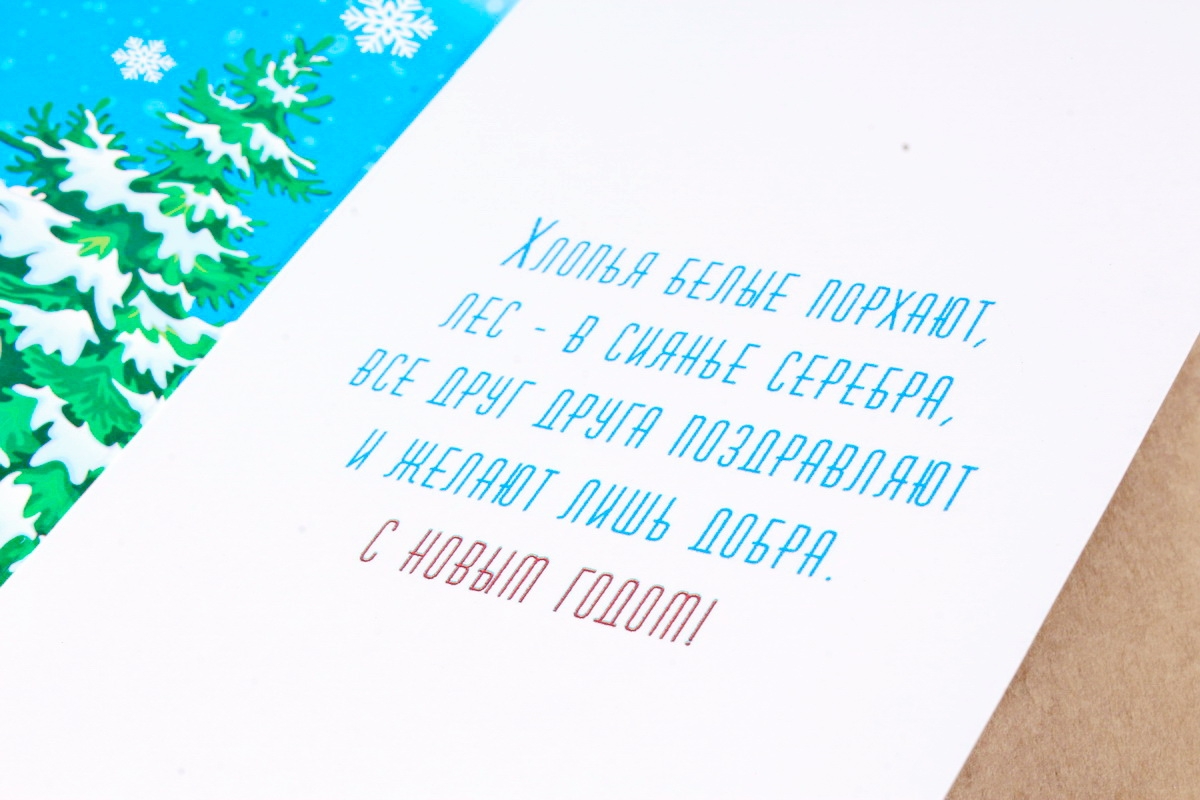 Хлопья белые порхают,
лес - в сиянье серебра,
все друг друга поздравляют
и желают лишь добра.
С Новым годом!